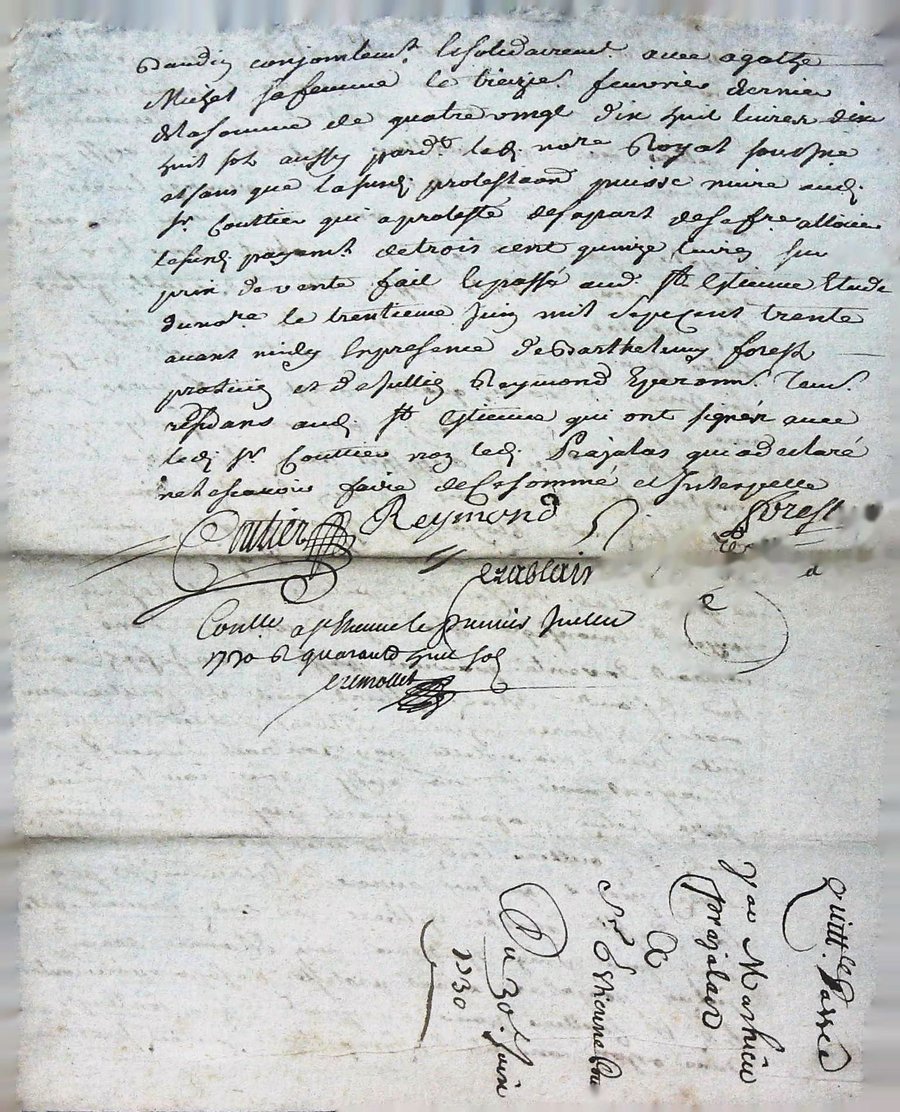 conjointem.t Et solidairemt. avec agathe
Michel sa femme le treize feuvrier dernier
de la somme de quatre vingt dix huit livres dix
huit sols aussy pard.t led. no.re Royal sousne
et sans que lad. protestaon puisse nuire aud.
Sr. Couttier qui a proteste de sa part
payant. de trois cent quinze livres
prix de vente fait Et passé aud. St. Estienne Etude
du no.re le trentieme Juin mil sept cent trente
avant midy En presence de Barthelemy forest
praticien et de Jullien Reymond
residans aud. St. Estienne qui ont signés avec
led. Sr. Couttier non led. Prajalas qui a declaré
ne le scavoir faire de ce sommé et Interpellé
Coutier Reymond Forest
Conlle. a St. Etienne le premier Juillet
1730 R quarante huit sols
quitt.ce Passée
Par Mathieu
prajalas
A
Sr. Estienne Cou
Du 30.e Juin
1730